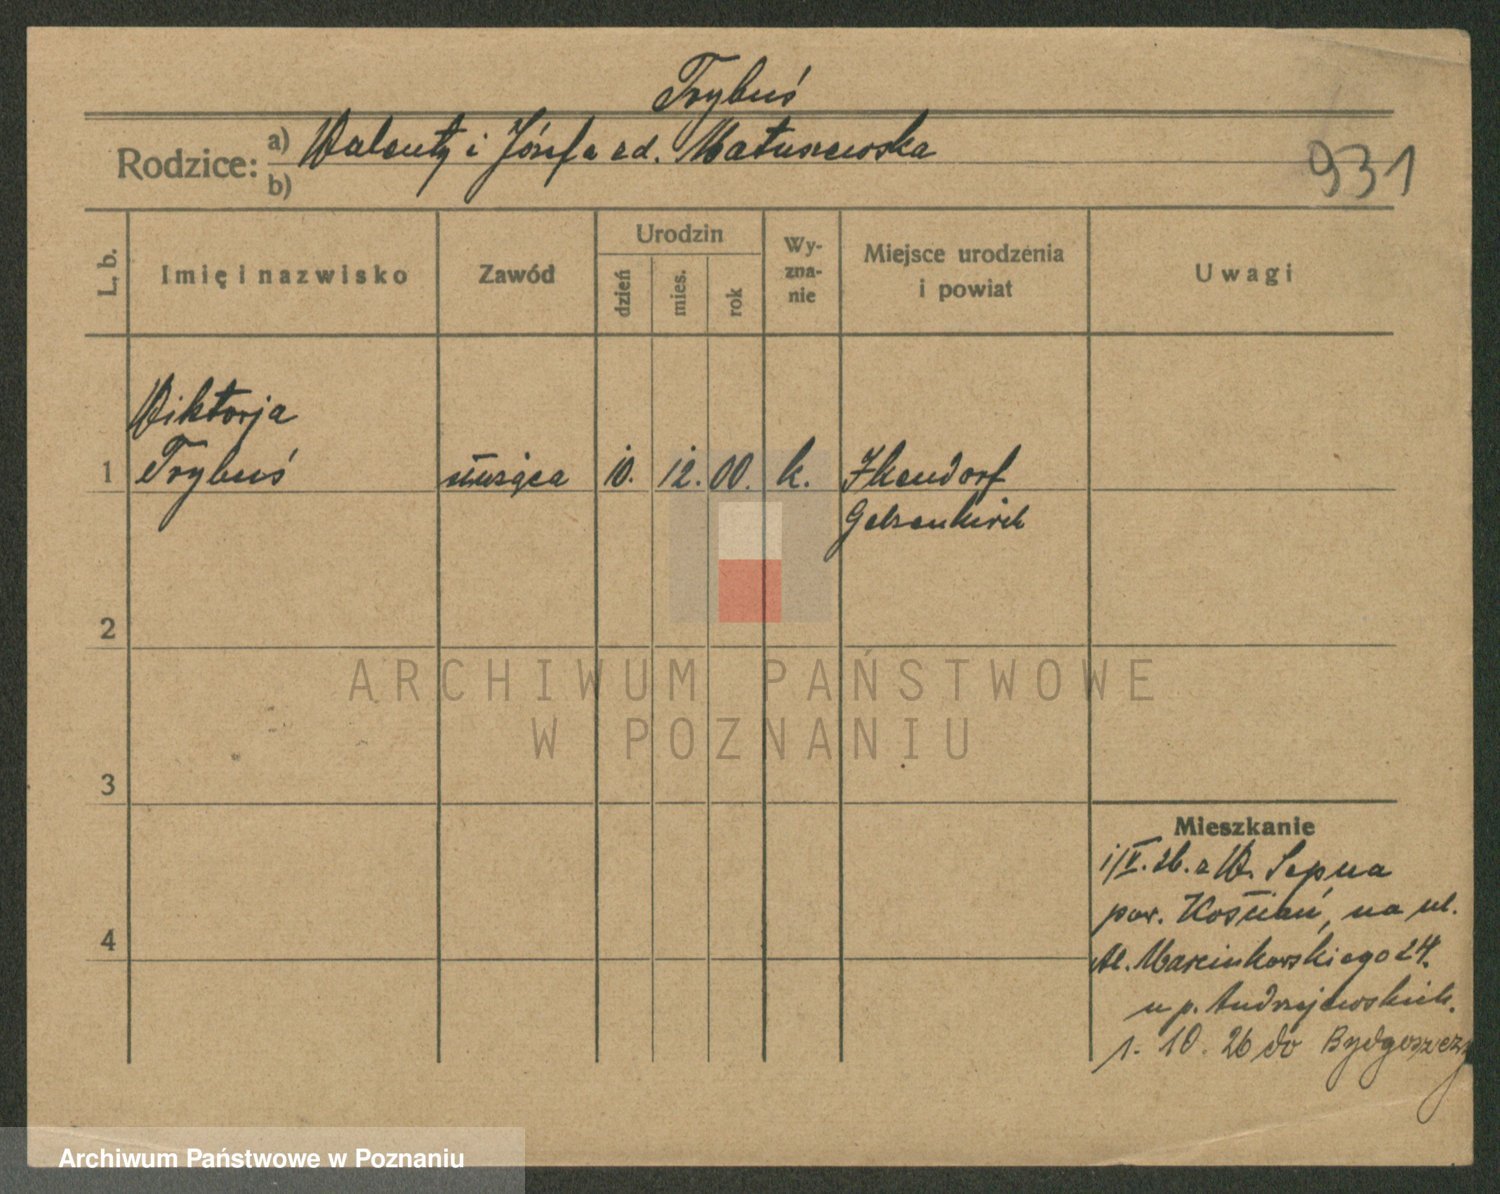 Trybuś
Rodzice: a) Walenty i Józefa zd. Matuszewska
b)
931
L. b.
Imię i nazwisko
Zawód
Urodzin
dzień
mies.
rok
Wy-
zna-
nie
Miejsce urodzenia
i powiat
Uwagi
Wiktorja
1 Trybuś służąca 10. 12. 00. k. Ikendorf
Gelsenkirch
2
3
4
Mieszkanie
1/V. 26. z W. Sepna
pow. Kościan, na ul.
Al. Marcinkowskiego 24.
u p. Andrzejewskich.
1. 10. 26 do Bydgoszczy
ARCHIWUM PAŃSTWOWE
W POZNANIU
Archiwum Państwowe w Poznaniu